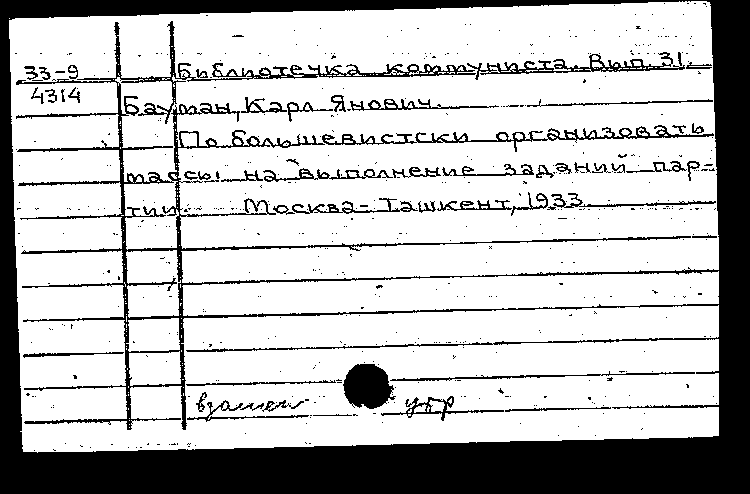 33-9 Библиотечка коммуниста. Вып. 31.
4314 Бауман, Карл Янович.
По большевистски организовать
массы на выполнение заданий пар-
тии. Москва-Ташкент, 1933.
взамен укр